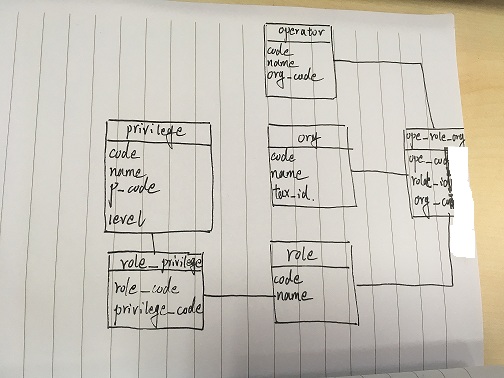 operator
code
name
org_code
privilege
code
name
p_code
level
org
code
name
tax_id.
ope_role_org
role_privilege
role_code
privilege_code
role
code
name